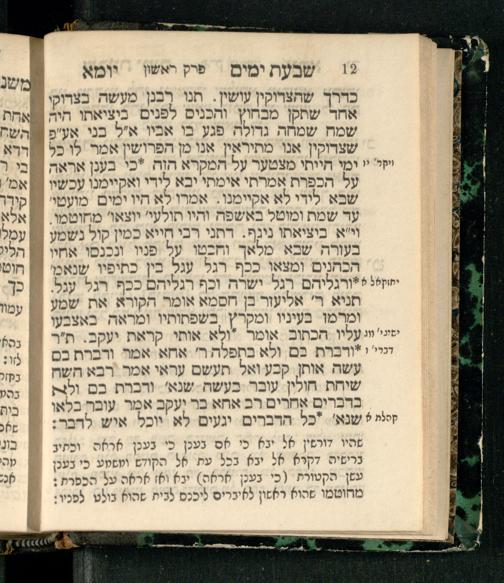 12 שבעת ימים פרק ראשון יומא
כדרך שהצדוקין עושין. תנו רבנן מעשה בצדוקי
אחד שתקן מבחוץ והכניס לפנים ביציאתו היה
שמח שמחה גדולה פגע בו אביו א״ל בני אע״פ
שצדוקין אנו מתיראין אנו מן הפרושין אמר לו כל
ויקר׳ יו ימי הייתי מצטער על המקרא הזה *כי בענן אראה
על הכפרת אמרתי אימתי יבא לידי ואקיימנו עכשיו
שבא לידי לא אקיימנו. אמרו לא היו ימים מועטי׳
עד שמת ומוטל באשפה והיו תולעי׳ יוצאו׳ מחוטמו.
וי״א ביציאתו נינף. דתני רבי חייא כמין קול נשמע
בעזרה שבא מלאך וחבטו על פניו ונכנסו אחיו
הכהנים ומצאו ככף רגל עגל בין כתיפיו שנאמ׳
יחזקאל א *ורגליהם רגל ישרה וכף רגליהם ככף רגל עגל.
תניא ר׳ אליעזר בן חסמא אומר הקורא את שמע
ומרמז בעיניו ומקרץ בשפתותיו ומראה באצבעו
ישעי׳ מג עליו הכתוב אומר *ולא אותי קראת יעקב. ת״ר
דברי׳ ו *ודברת בם ולא בתפלה ר׳ אחא אמר ודברת בם
עשה אותן קבע ואל תעשם עראי אמר רבא השח
שיחת חולין עובר בעשה שנא׳ ודברת בם ולא
בדברים אחרים רב אחא בר יעקב אמר עובר בלאו
קהלת א שנא׳ *כל הדברים יגעים לא יוכל איש לדבר:
שהיו דורשין אל יבא כי אם בענן כי בענן אראה וכתיב
ברישיה דקרא אל יבא בכל עת אל הקודש ומשמע כי בענן
עשן הקטורת (כי בענן אראה) יבא ואז אראה על הכפרת:
מחוטמו שהוא ראשון לאיברים ליכנס לבית שהוא בולט לפניו: